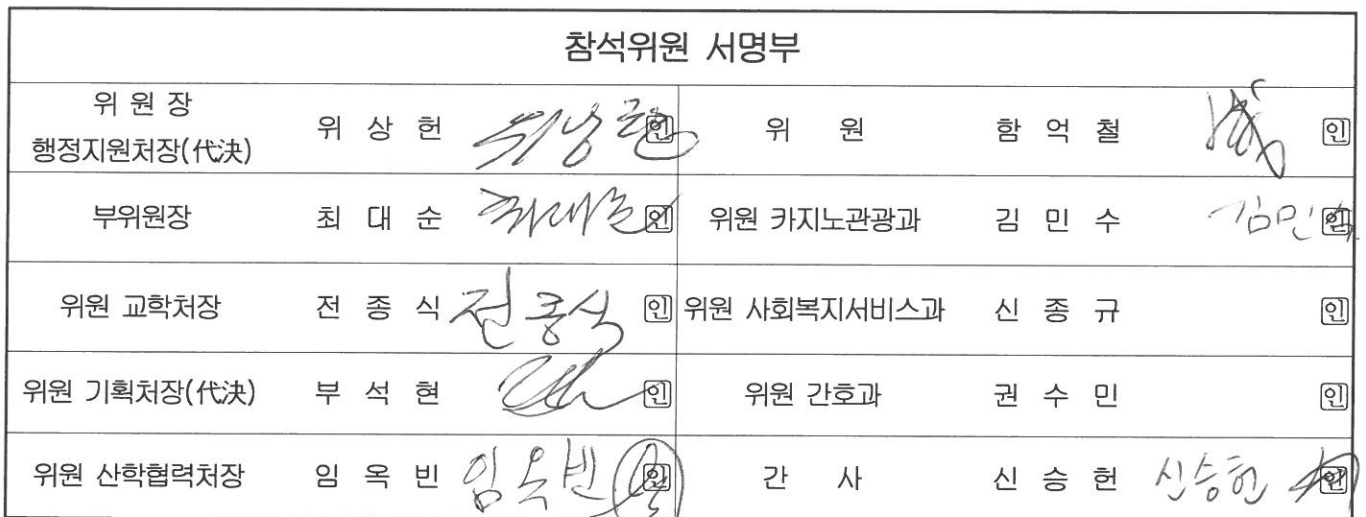 참석위원 서명부
위 원 장
행정지원처장(代決) 위 상 헌 위상헌 인 위 원 함 억 철 인
부위원장 최 대 순 최대순 인 위원 카지노관광과 김 민 수 김민수 인
위원 교학처장 전 종 식 전종식 인 위원 사회복지서비스과 신 종 규 인
위원 기획처장(代決) 부 석 현 인 위원 간호과 권 수 민 인
위원 산학협력처장 임 옥 빈 임옥빈 인 간 사 신 승 헌 신승헌 인